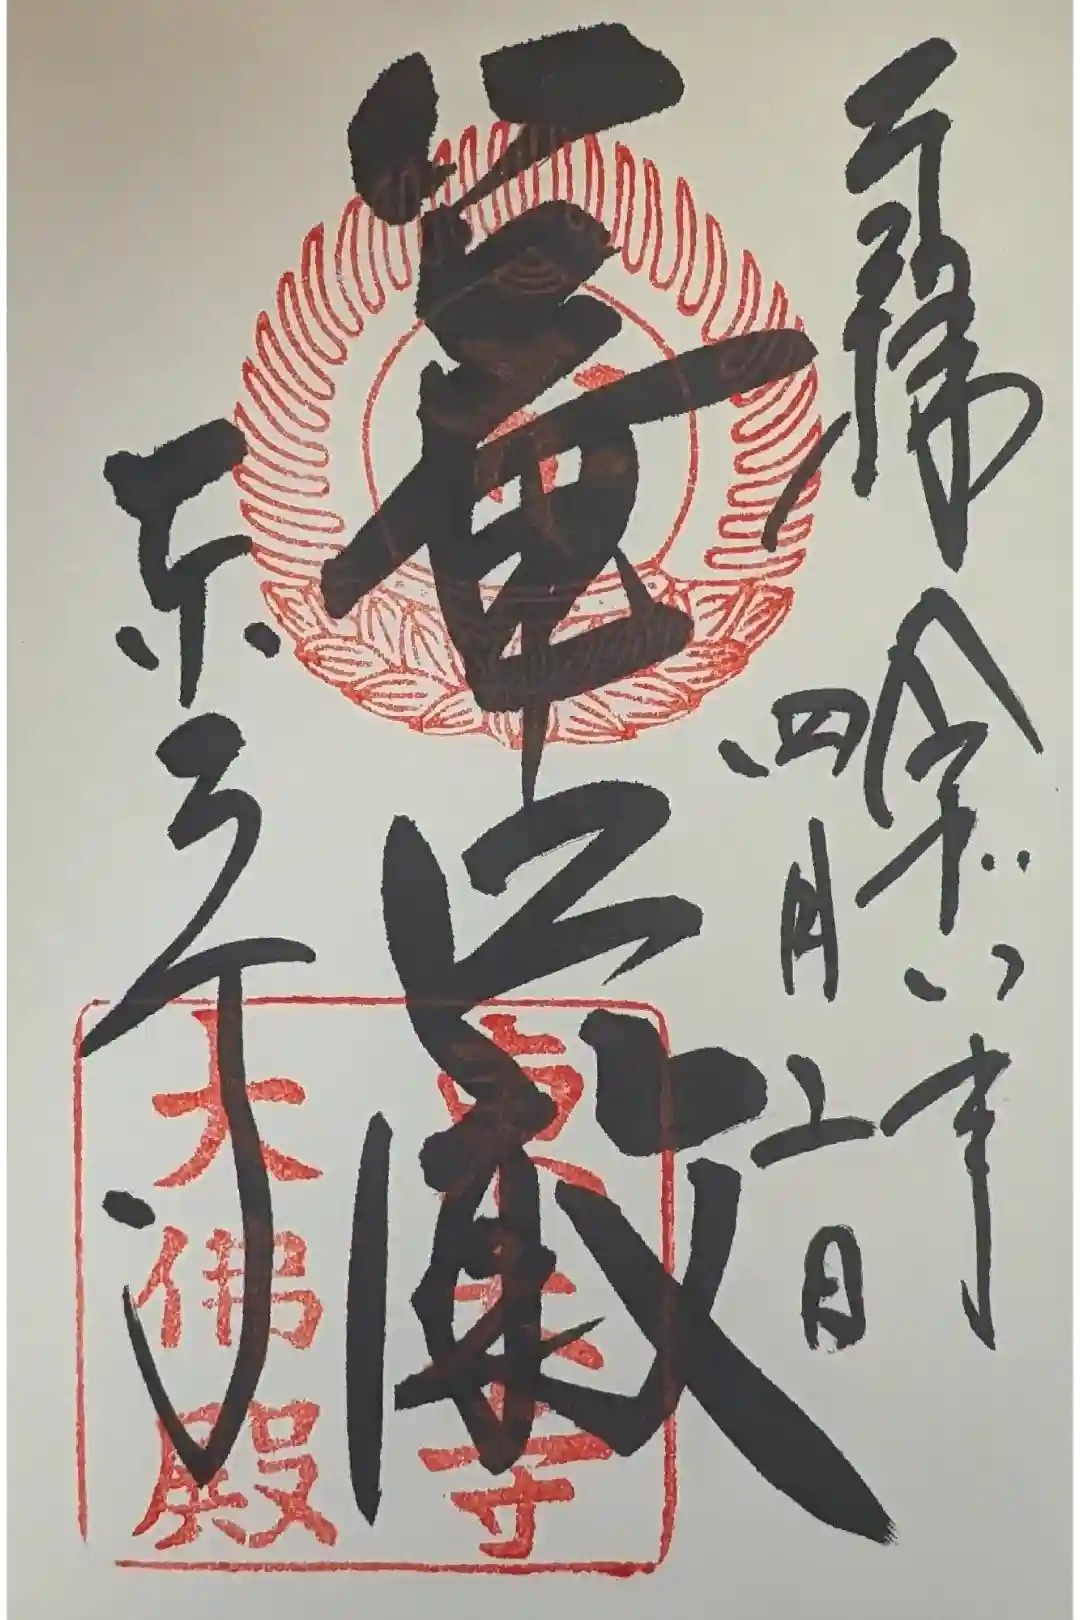 奉拝 令和八年
四月 日
華嚴
東大寺
東大寺
大佛殿